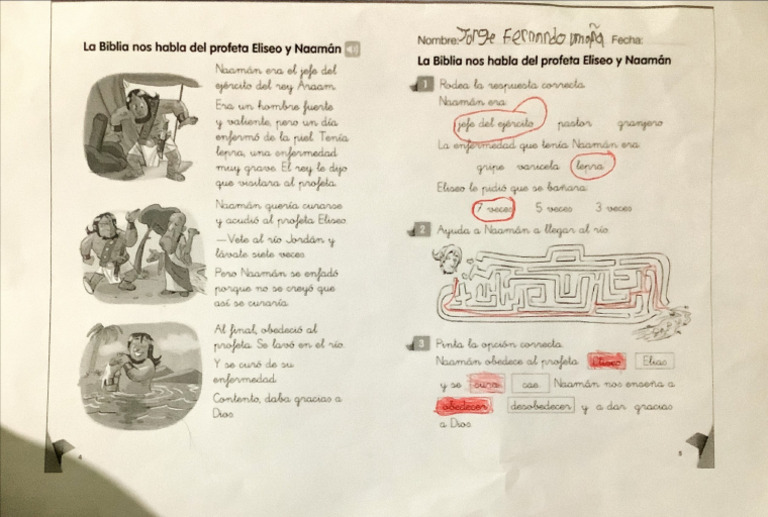 La Biblia nos habla del profeta Eliseo y Naamán
Naamán era el jefe del
ejército del rey Araam.
Era un hombre fuerte
y valiente, pero un día
enfermó de la piel. Tenía
lepra, una enfermedad
muy grave. El rey le dijo
que visitara al profeta.
Naamán quería curarse
y acudió al profeta Eliseo.
—Vete al río Jordán y
lávate siete veces.
Pero Naamán se enfadó
porque no se creyó que
así se curaría.
Al final, obedeció al
profeta. Se lavó en el río.
Y se curó de su
enfermedad.
Contento, daba gracias a
Dios.
4
Nombre: Jorge Fernando Umaña Fecha:
La Biblia nos habla del profeta Eliseo y Naamán
1 Rodea la respuesta correcta.
Naamán era:
jefe del ejército pastor granjero
La enfermedad que tenía Naamán era:
gripe varicela lepra
Eliseo le pidió que se bañara:
7 veces 5 veces 3 veces
2 Ayuda a Naamán a llegar al río.
3 Pinta la opción correcta.
Naamán obedece al profeta Eliseo Elías
y se cura cae. Naamán nos enseña a
obedecer desobedecer y a dar gracias
a Dios.
5